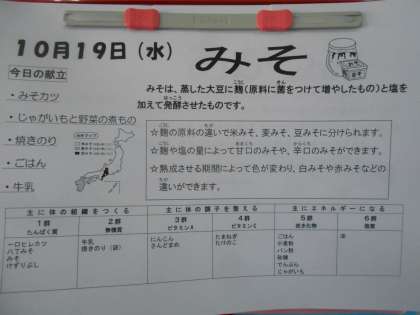 10月19日（水）
みそ
今日の献立
・みそカツ
・じゃがいもと野菜の煮もの
・焼きのり
・ごはん
・牛乳
みそは、蒸した大豆に麹（原料に菌をつけて増やしたもの）と塩を
加えて発酵させたものです。
☆麹の原料の違いで米みそ、麦みそ、豆みそに分けられます。
☆麹や塩の量によって甘口のみそや、辛口のみそができます。
☆熟成させる期間によって色が変わり、白みそや赤みそなどの
違いができます。
主に体の組織をつくる 主に体の調子を整える 主にエネルギーになる
1群 2群 3群 4群 5群 6群
たんぱく質 無機質 ビタミンA ビタミンC 炭水化物 脂質
一口ヒレカツ 牛乳 にんじん たまねぎ ごはん 油
焼きのり さんどまめ たけのこ 小麦粉
みそ パン粉
けずりぶし 砂糖
でんぷん
じゃがいも